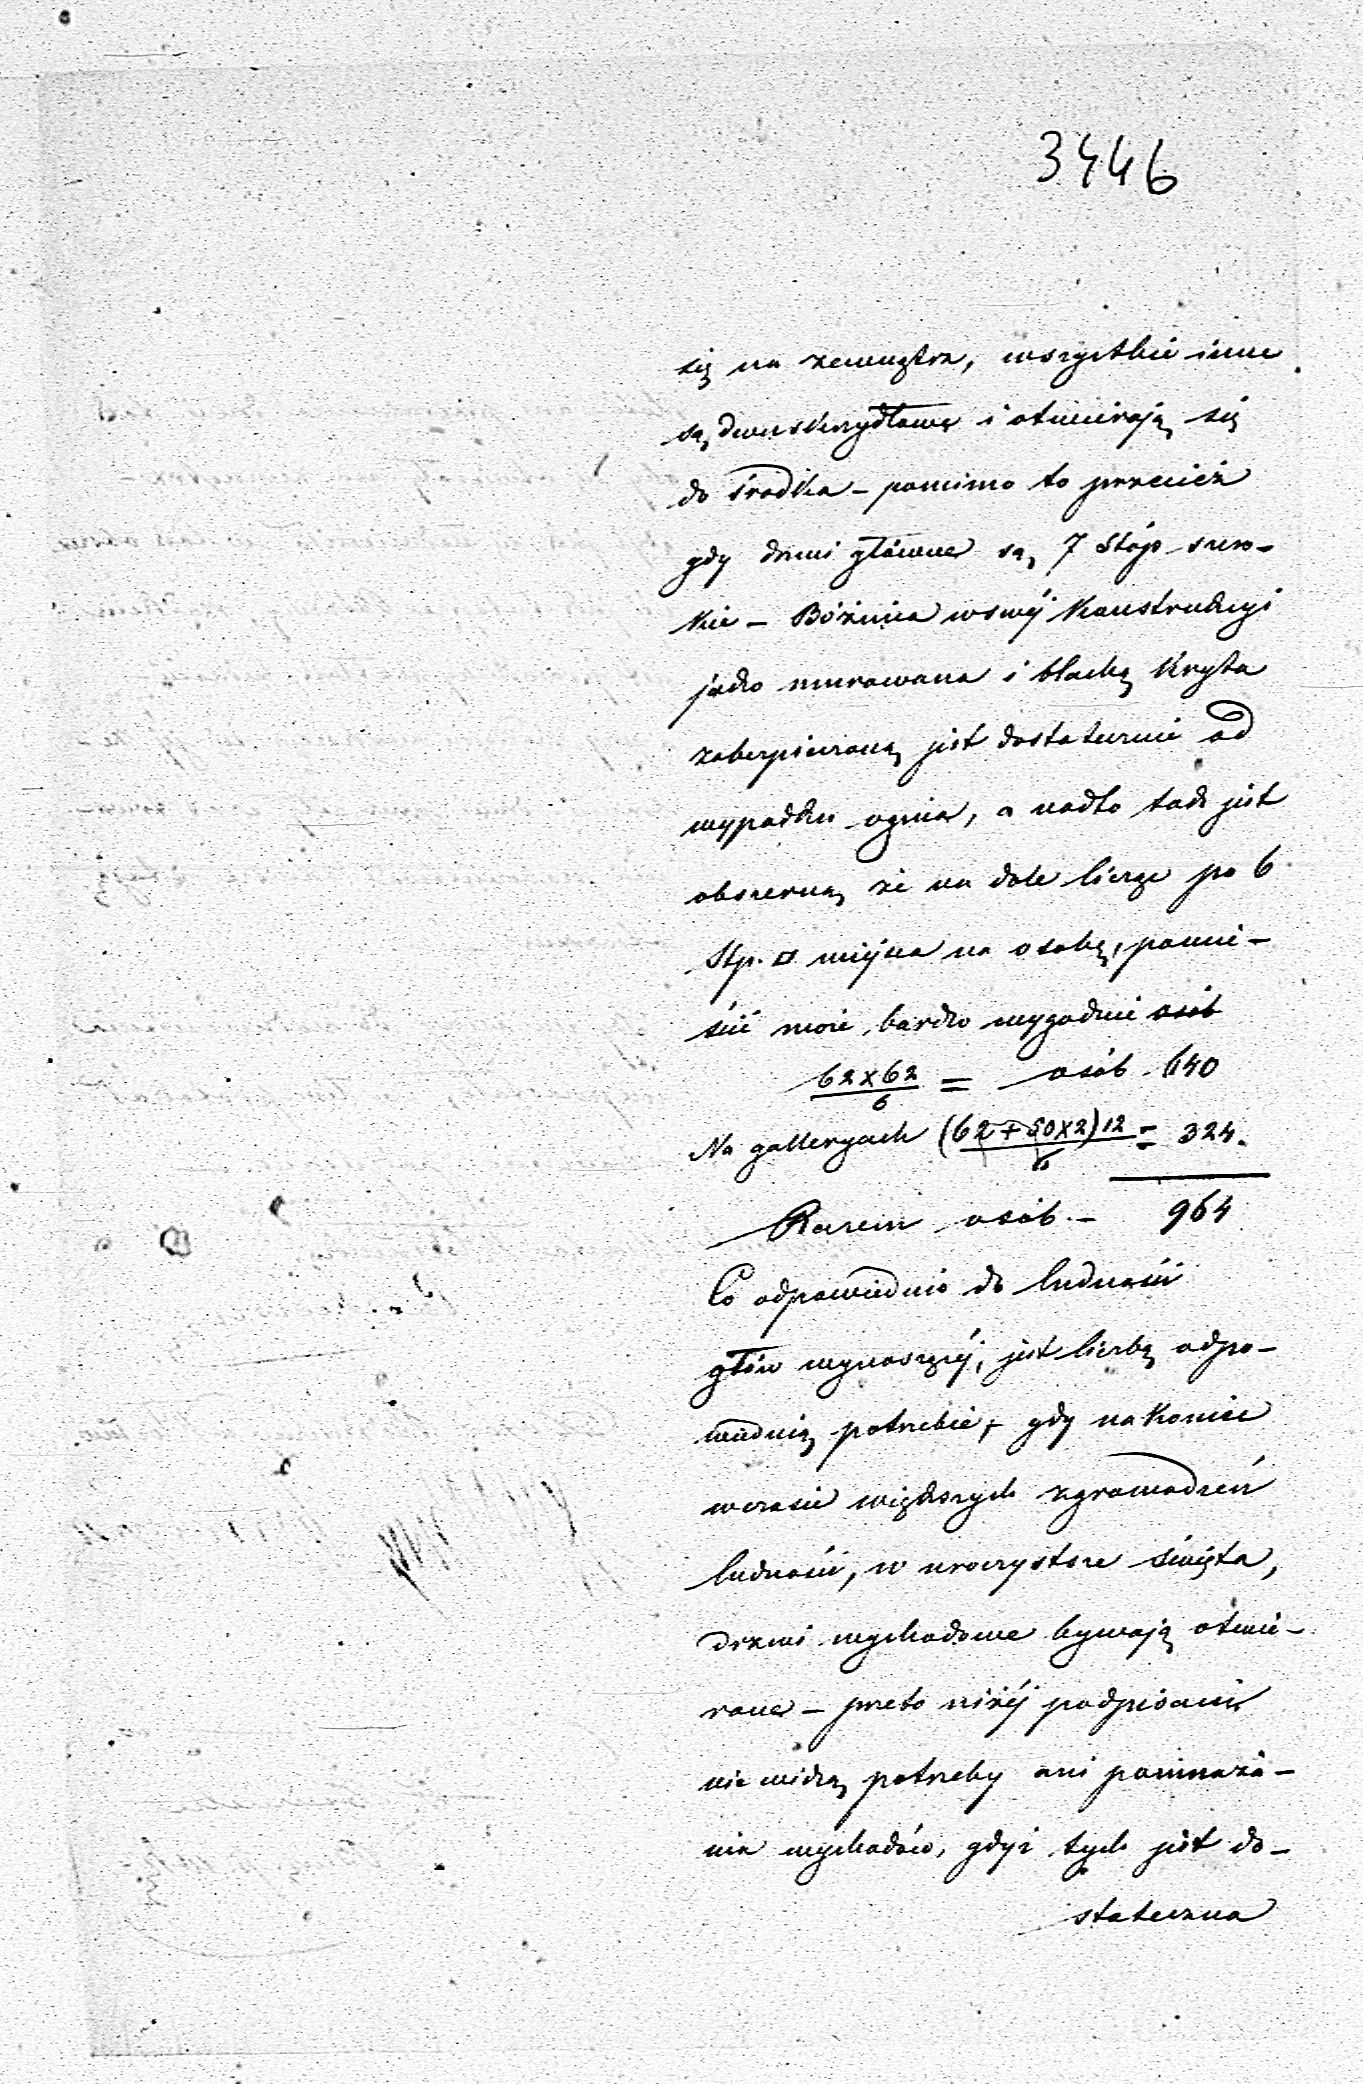 3446
się na zewnątrz, wszystkie inne
są dwuskrzydłowe i otwierają się
do środka – pomimo to przecież
gdy drzwi główne są 7 stóp szero-
kie – Bóżnica w swéj Konstrukcyi
jako murowana i blachą Kryta
zabezpieczoną jest dostatecznie od
wypadku ognia, a nadto tak jest
obszerną że na dole licząc po 6
Stp. □ miejsca na osobę, pomie-
ścić może bardzo wygodnie osób
62x62/6 = osób 640
Na galleryach (62+50x2)12/6 = 324.
Razem osób – 964
Co odpowiednio do ludności
głów wynoszącéj, jest liczbą odpo-
wiednią potrzebie, gdy nakoniec
w czasie większych zgromadzeń
ludności, w uroczystsze święta,
drzwi wychodowe bywają otwie-
rane – przeto niżéj podpisani
nie widzą potrzeby ani pomnaża-
nia wychodów, gdyż tych jest do-
stateczna